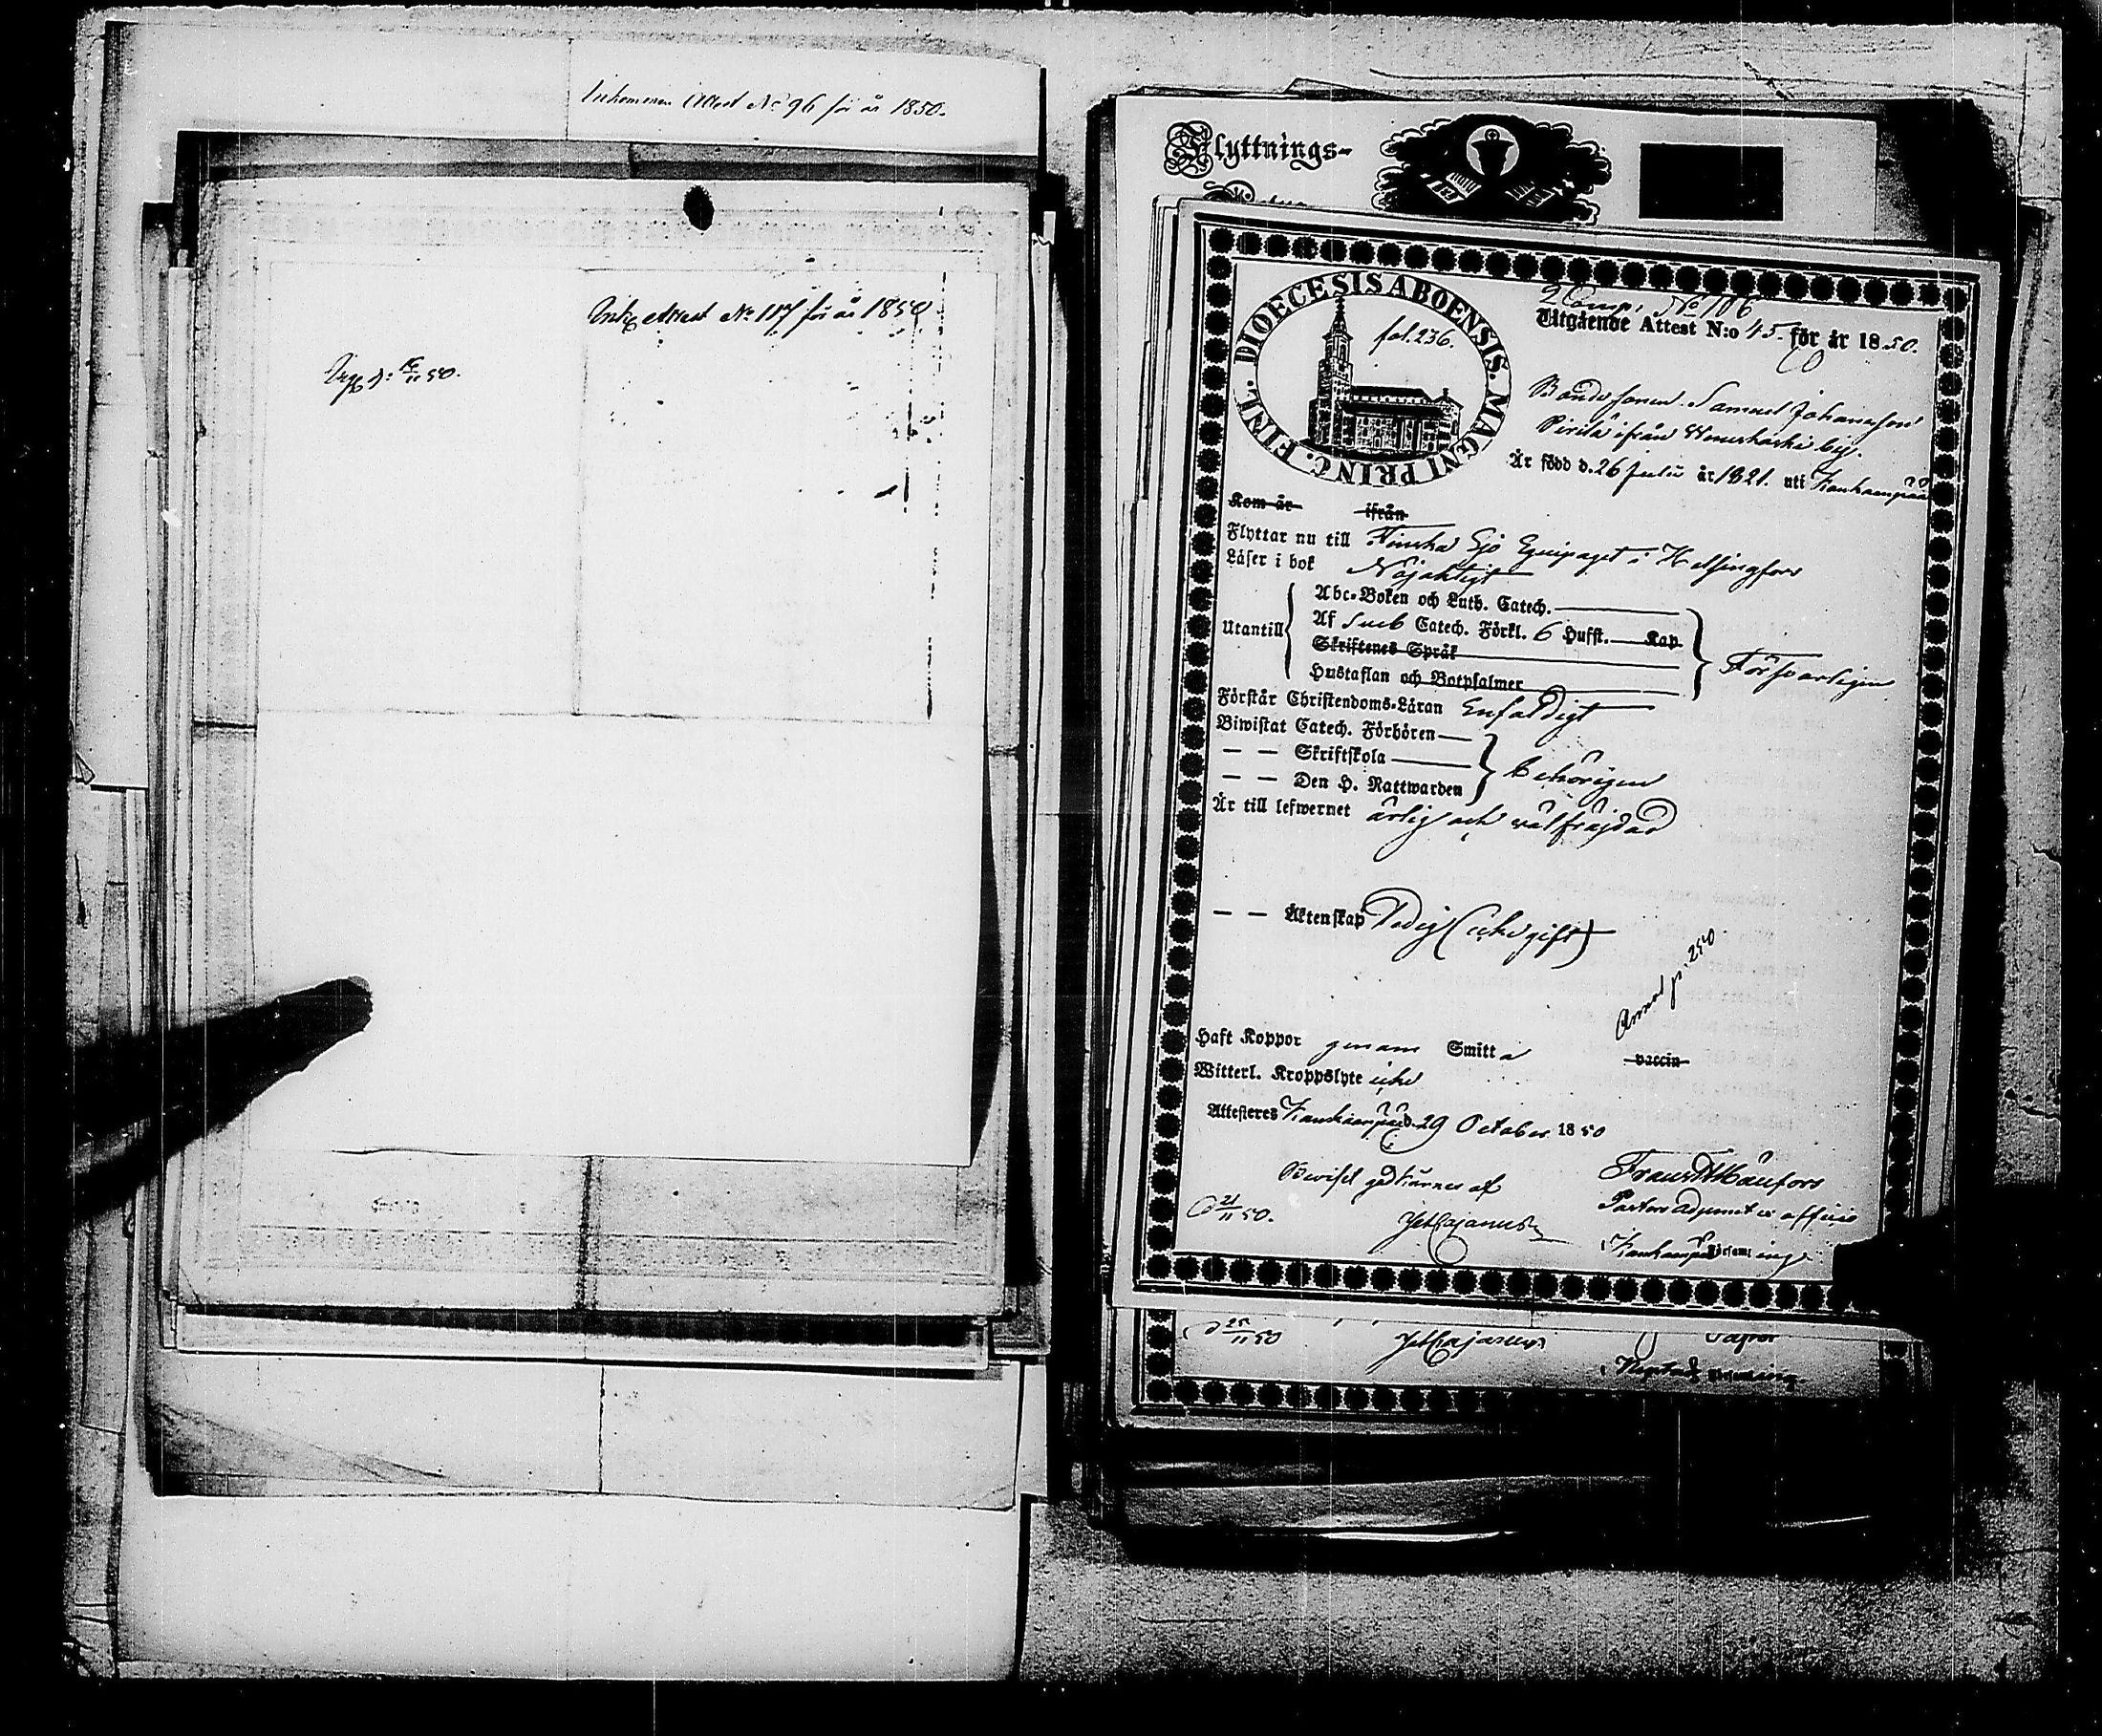 Inkommen Attest No 96 för år 1850.
Ink. Attest No 117 för år 1850
16/11 50.
Flyttnings-
DIOECESIS ABOENSIS. MAGNI PRINC. FINL.
fol. 236.
2 Comp. No 106
Utgående Attest N:o 45. för år 1850.
Bondesonen Samuel Johansson
ifrån by.
Är född d. 26 Julii år 1821. uti Kankaanpää
Kom år ifrån
Flyttar nu till Finska Sjö Equipaget i Helsingfors
Läser i bok Nöjaktigt
Utantill
Abc-Boken och Luth. Catech.
Af Sveb Catech. Förkl. 6 Hufst. Kap
Skriftenes Språk
Hustaflan och Botpsalmer
Försvarligen
Förstår Christendoms-Läran Enfaldigt
Biwistat Catech. Förhören
— — Skriftskola
— — Den H. Nattwarden
behörigen
Är till lefwernet ärlig och välfräjdad
— — Äktenskap Ledig (icke gift)
250
Haft Koppor genom Smitta vaccin
Witterl. Kroppslyte icke
Attesteres Kankaanpää d. 29 October 1850
Beviset godkännes af
21/11 50.
Cajanus
Pastors adjunct ex officio
i Kankaanpää Församling
25/11 50
Cajanus
Pastor